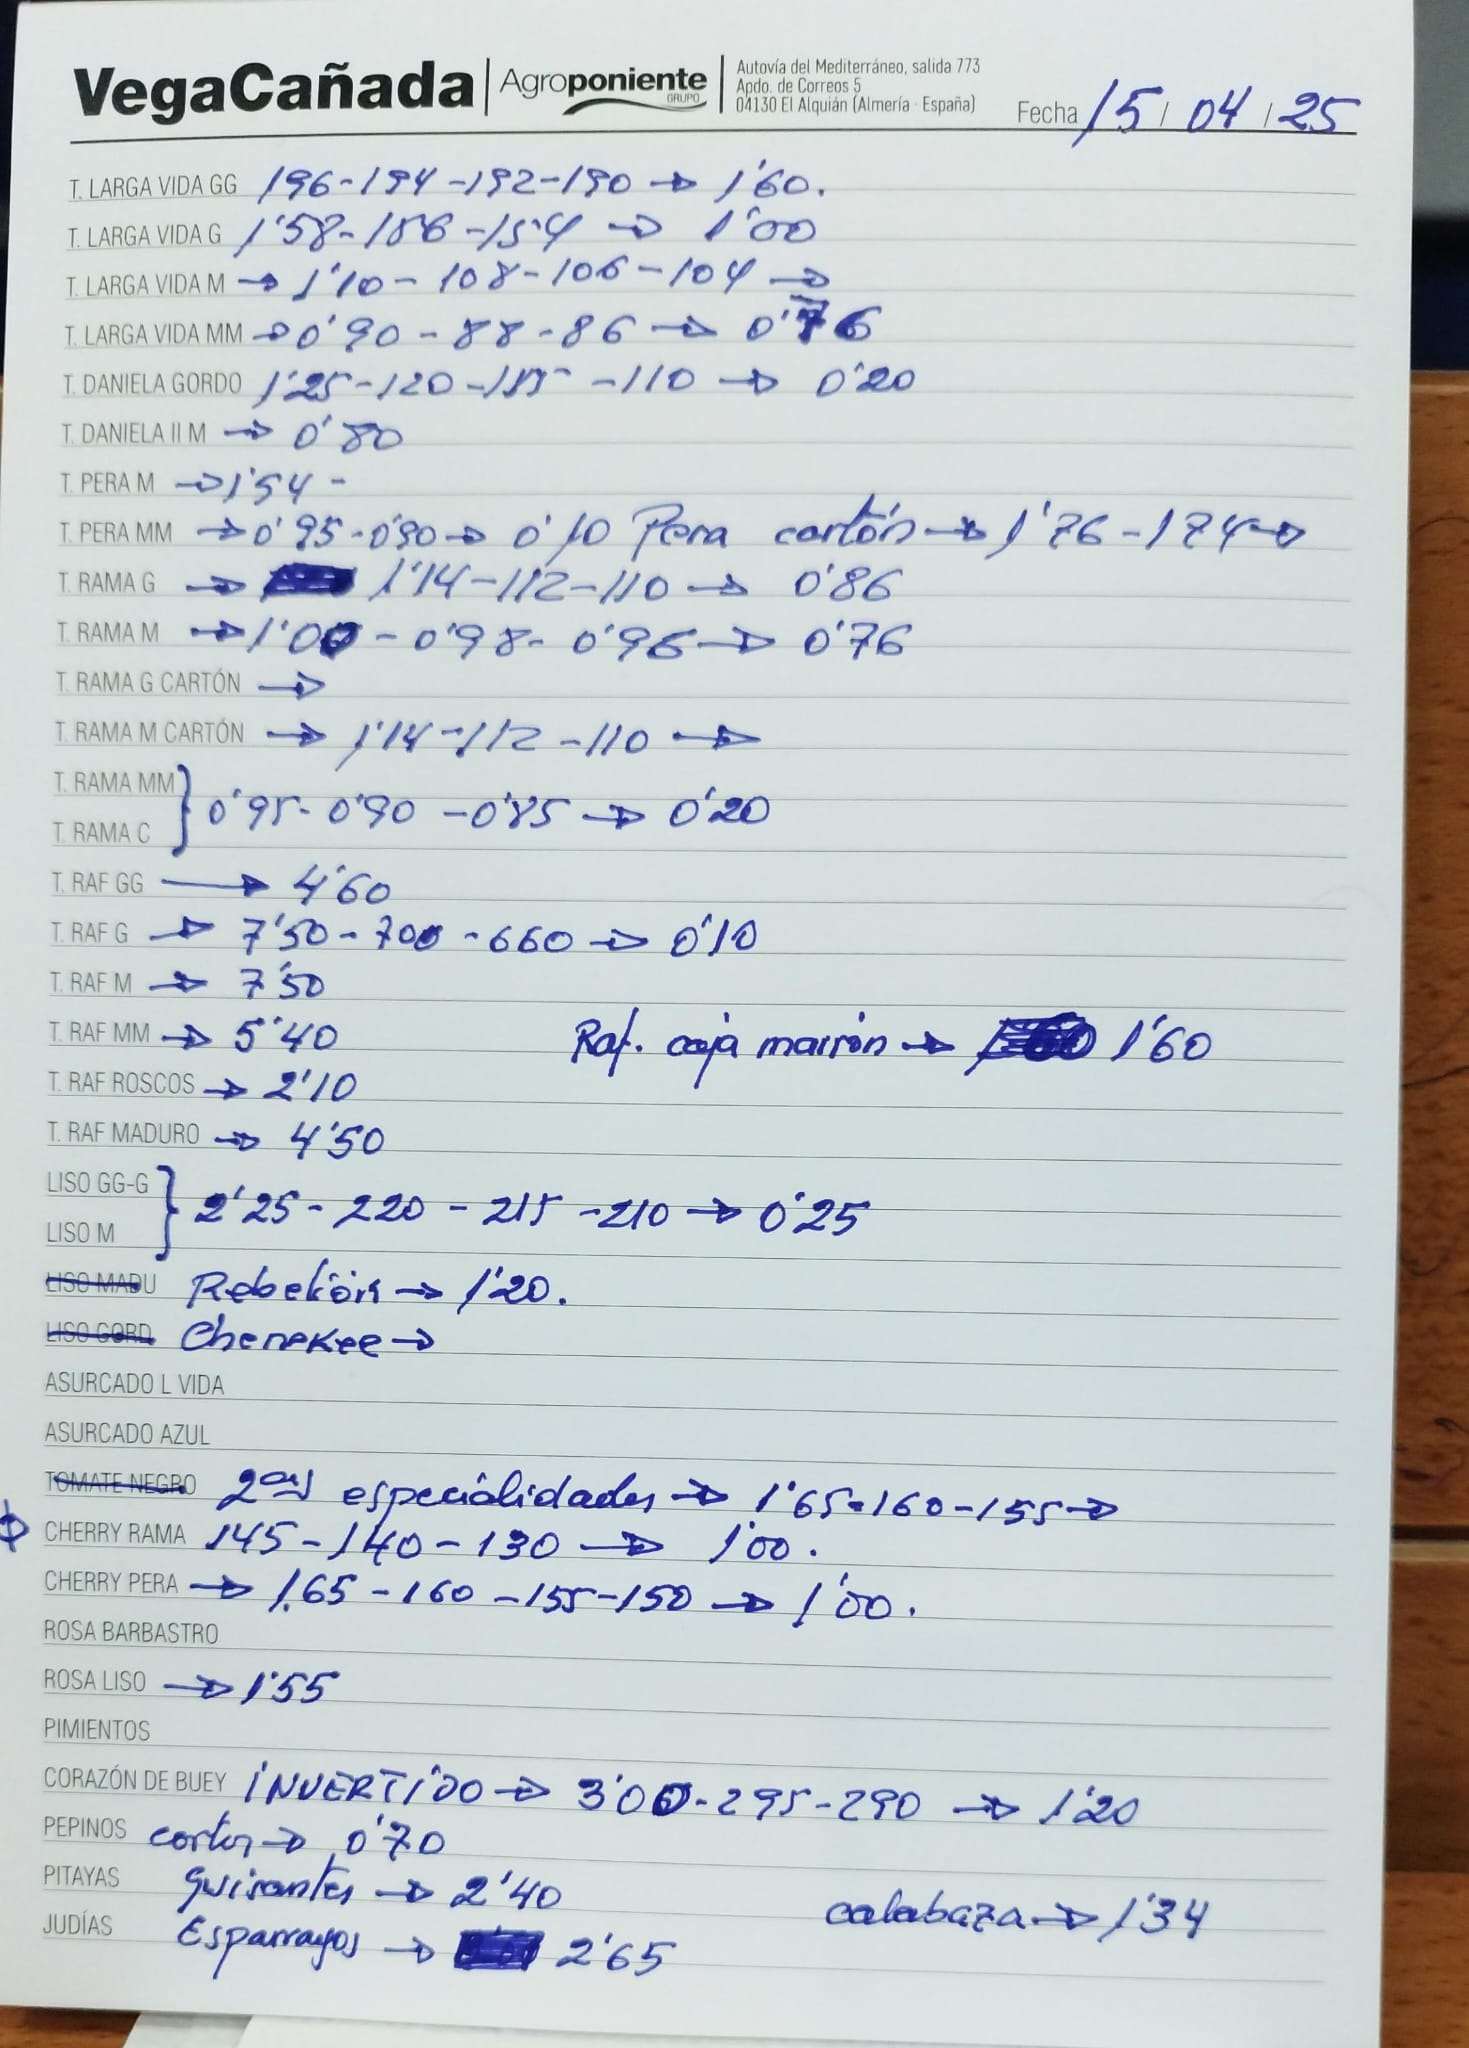 VegaCañada | Agroponiente GRUPO
Autovía del Mediterráneo, salida 773
Apdo. de Correos 5
04130 El Alquián (Almería · España)
Fecha 15 / 04 / 25
T. LARGA VIDA GG 196-194-192-190 → 1'60.
T. LARGA VIDA G 1'58-156-154 → 1'00
T. LARGA VIDA M → 1'10-108-106-104 →
T. LARGA VIDA MM → 0'90-88-86 → 0'76
T. DANIELA GORDO 1'25-120-115-110 → 0'20
T. DANIELA II M → 0'80
T. PERA M → 1'54-
T. PERA MM → 0'95-0'90 → 0'10 Pera cartón → 1'76-174 →
T. RAMA G → 1'14-112-110 → 0'86
T. RAMA M → 1'00-0'98-0'96 → 0'76
T. RAMA G CARTÓN →
T. RAMA M CARTÓN → 1'14-112-110 →
T. RAMA MM
T. RAMA C } 0'95-0'90-0'85 → 0'20
T. RAF GG → 4'60
T. RAF G → 7'50-700-660 → 0'10
T. RAF M → 7'50
T. RAF MM → 5'40 Raf. caja marrón → 1'60
T. RAF ROSCOS → 2'10
T. RAF MADURO → 4'50
LISO GG-G
LISO M } 2'25-220-215-210 → 0'25
LISO MADU Rebelión → 1'20.
LISO GORD Cherokee →
ASURCADO L VIDA
ASURCADO AZUL
TOMATE NEGRO 2as especialidades → 1'65-160-155 →
→ CHERRY RAMA 145-140-130 → 1'00.
CHERRY PERA → 1.65-160-155-150 → 1'00.
ROSA BARBASTRO
ROSA LISO → 1'55
PIMIENTOS
CORAZÓN DE BUEY INVERTIDO → 3'00-295-290 → 1'20
PEPINOS cortos → 0'70
PITAYAS guisantes → 2'40 calabaza → 1'34
JUDÍAS Esparragos → 2'65